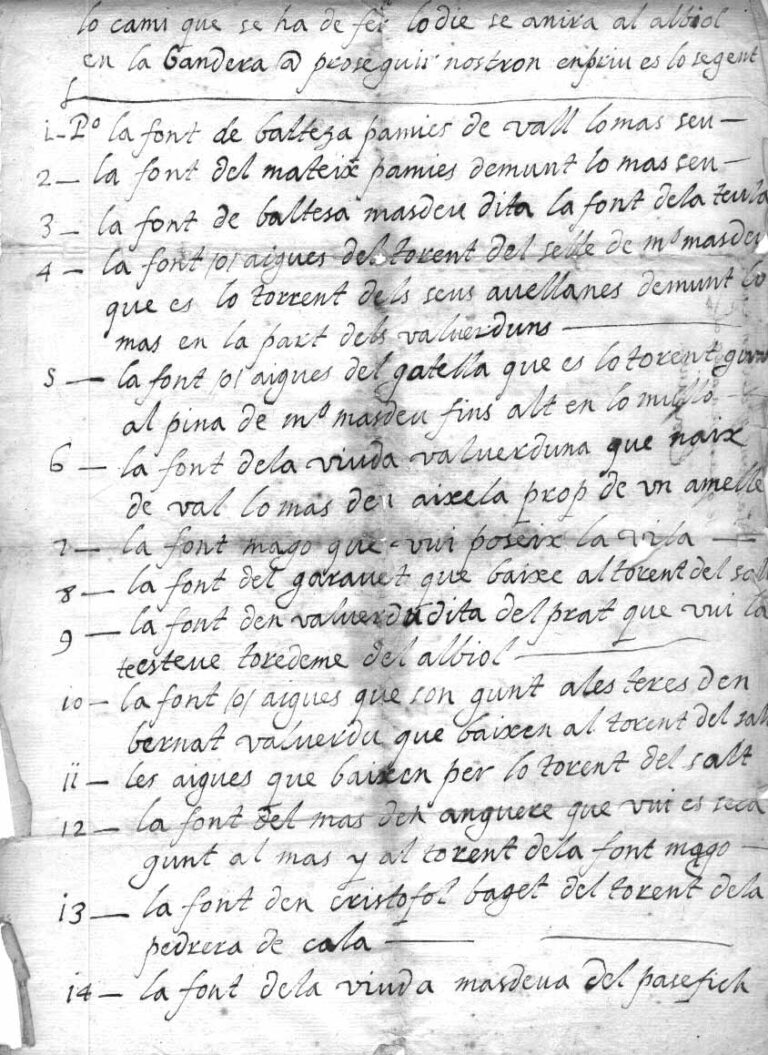 lo cami que se ha de fer lo die se anira al albiol
en la bandera @ proseguir nostron enpriu es lo segent
1 – Pº la font de baltesa pamies de vall lo mas seu –
2 – la font del mateix pamies demunt lo mas seu –
3 – la font de baltesa masdeu dita la font dela teula
4 – la font /o/ aigues del torent del selle de mº masdeu
que es lo torrent dels seus avellanes demunt lo
mas en la part dels valverduns —
5 – la font /o/ aigues del gatella que es lo torent
al pina de mº masdeu fins alt en lo
6 – la font dela viuda valverduna que naix
de val lo mas den aixela prop de vn amelle
7 – la font mago que vui poseix la vila —
8 – la font del garauet que baixe al torent del salt
9 – la font den valuerdu dita del prat que vui la
te esteve toredeme del albiol —
10 – la font /o/ aigues que son gunt a les teres den
bernat valuerdu que baixen al torent del salt
11 – les aigues que baixen per lo torent del salt
12 – la font del mas den anguere que vui es seca
gunt al mas y al torent dela font mago –
13 – la font den cristofol baget del torent dela
pedrera de cala —
14 – la font dela viuda masdeua del pasefich